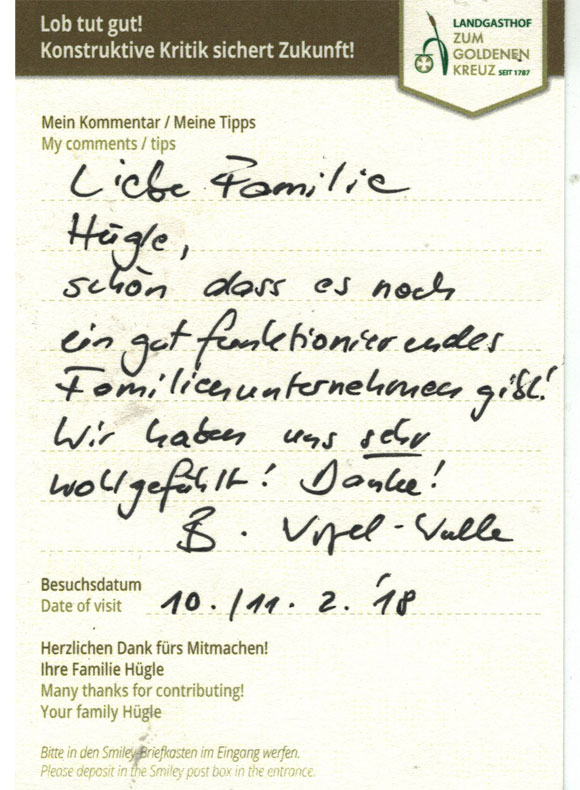 Lob tut gut!
Konstruktive Kritik sichert Zukunft!
LANDGASTHOF
ZUM
GOLDENEN
KREUZ SEIT 1787
Mein Kommentar / Meine Tipps
My comments / tips
Liebe Familie
Hügle,
schön dass es noch
ein gut funktionierendes
Familienunternehmen gibt!
Wir haben uns sehr
wohlgefühlt! Danke!
B.
Besuchsdatum
Date of visit 10./11. 2. '18
Herzlichen Dank fürs Mitmachen!
Ihre Familie Hügle
Many thanks for contributing!
Your family Hügle
Bitte in den Smiley-Briefkasten im Eingang werfen.
Please deposit in the Smiley post box in the entrance.